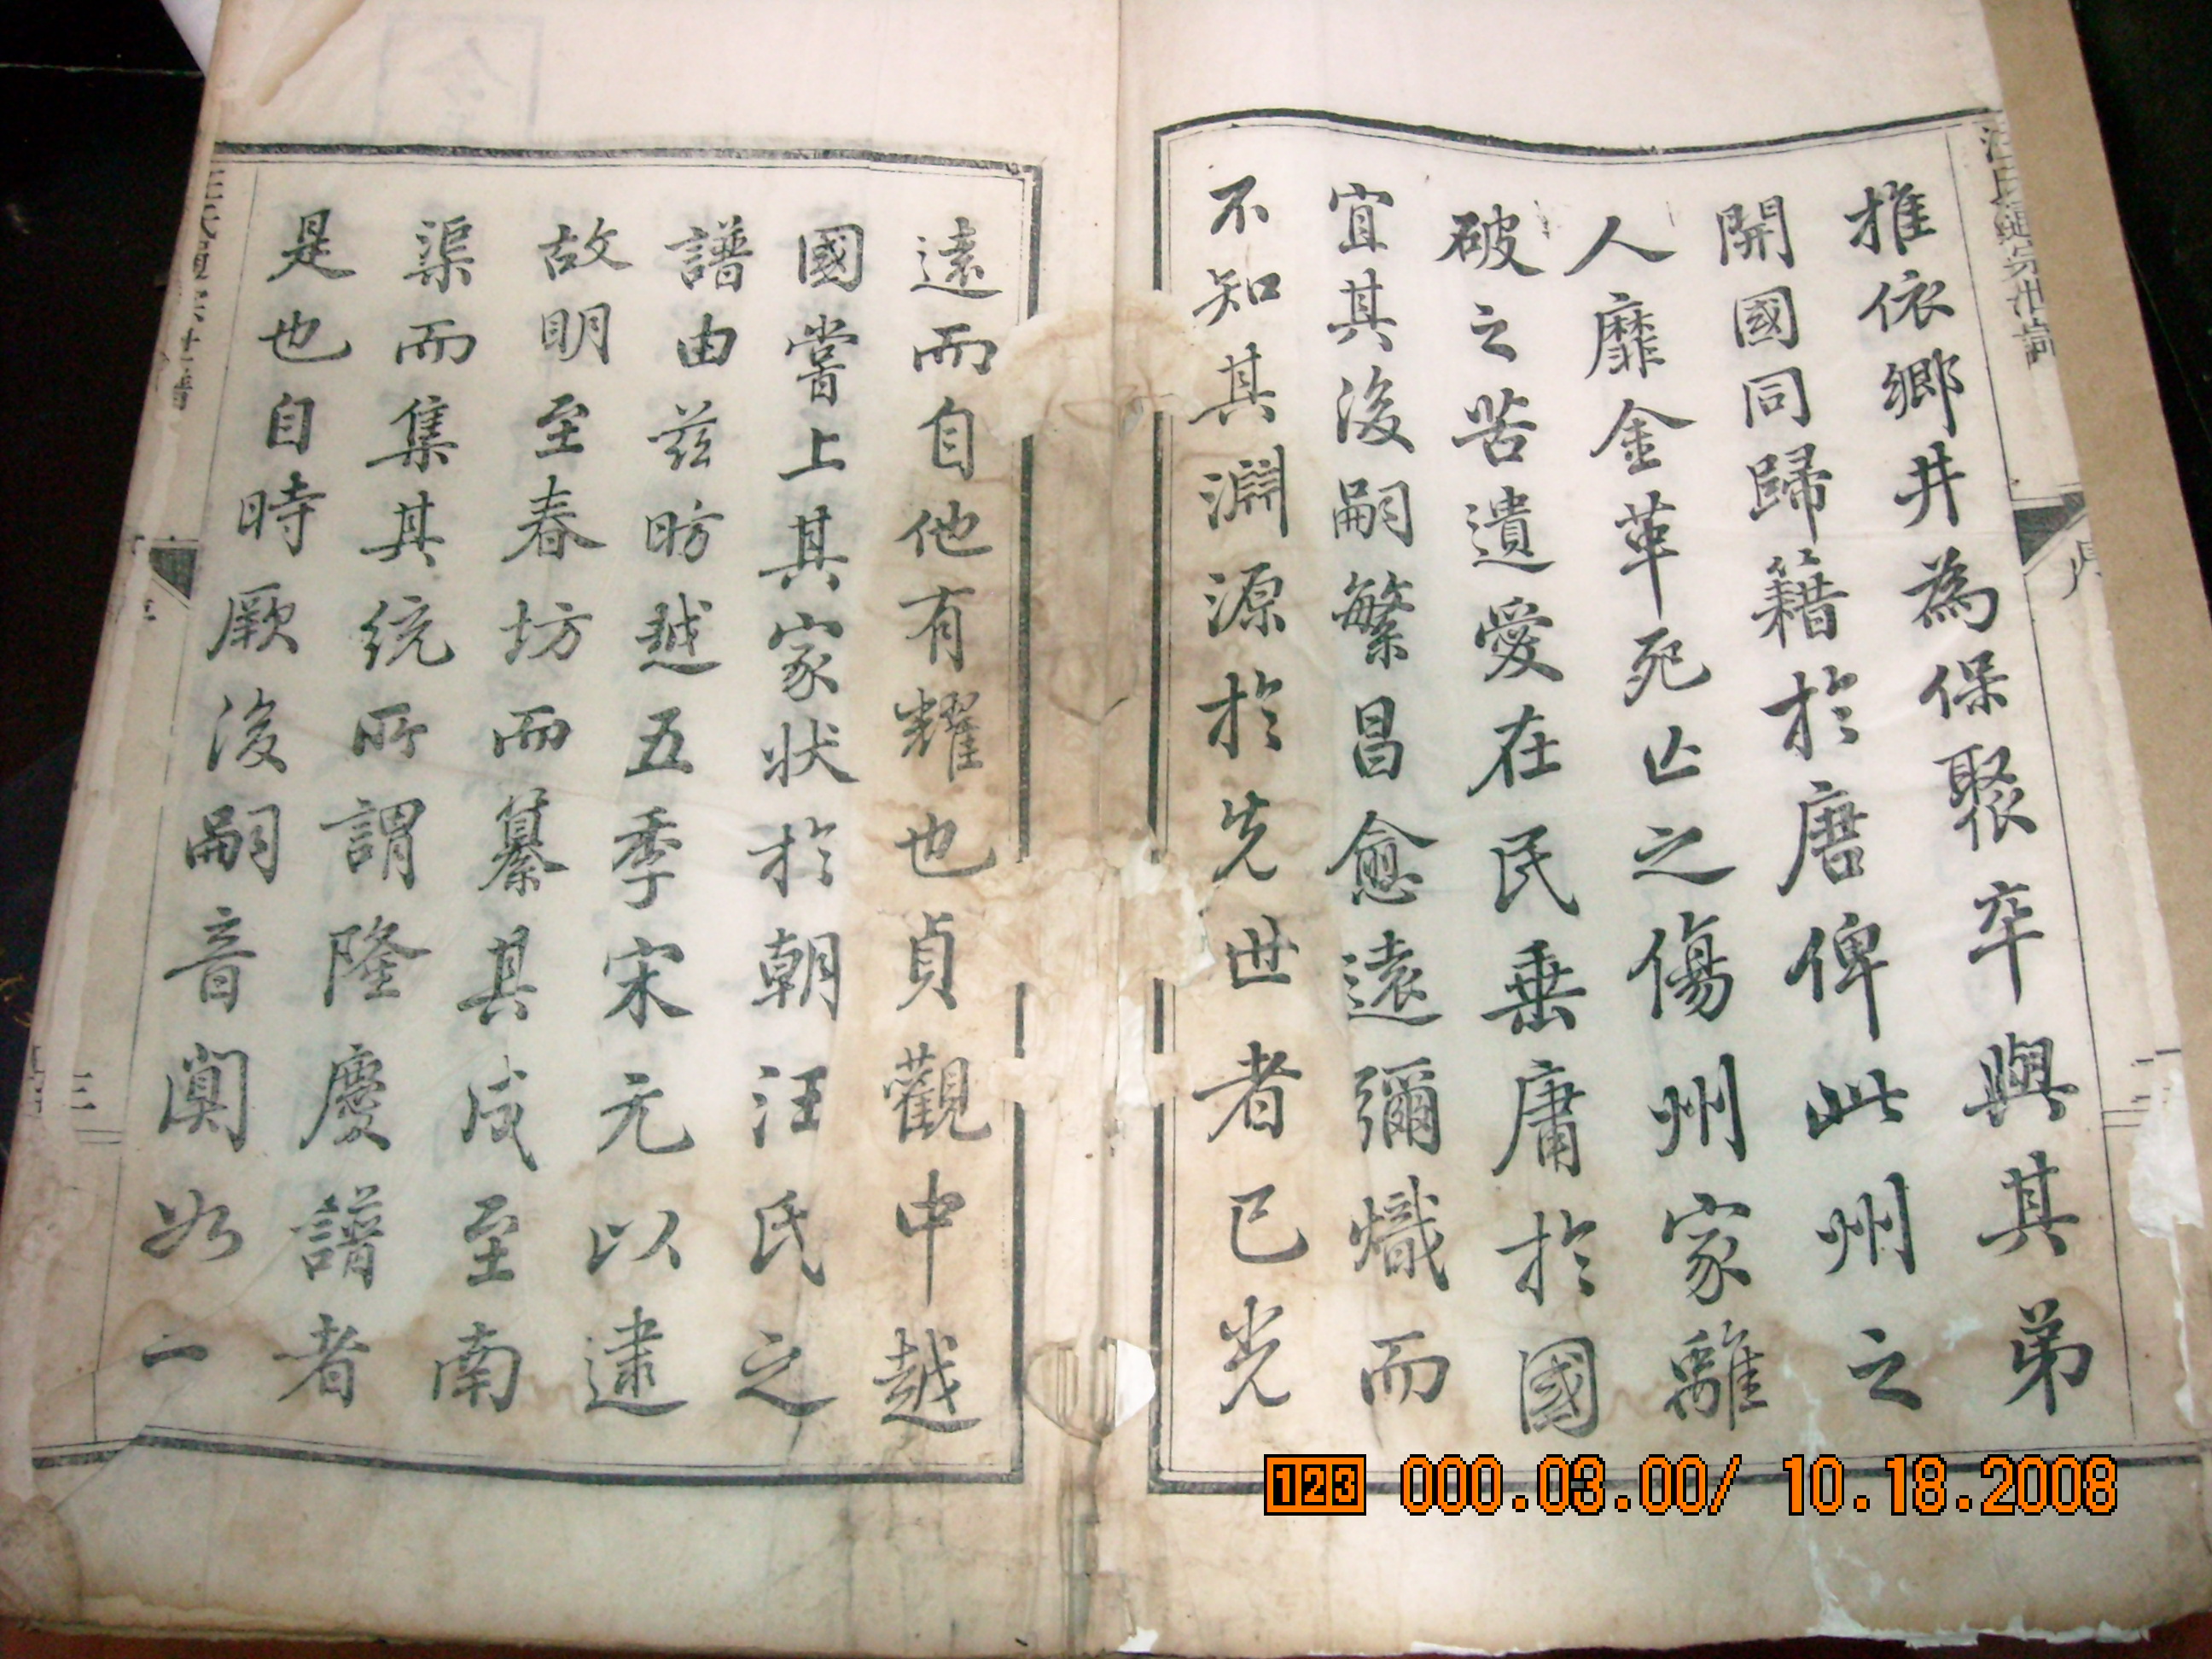 推依鄉井為保聚卒與其弟
開國同歸籍於唐俾此州之
人靡金革死亡之傷州家離
破之苦遺愛在民垂庸於國
宜其後嗣繁昌愈遠彌熾而
不知其淵源於先世者已光
遠而自他有耀也貞觀中越
國嘗上其家狀於朝汪氏之
譜由茲昉越五季宋元以逮
故明至春坊而纂其成至南
渠而集其統所謂隆慶譜者
是也自時厥後嗣音闃如二
三
123 000.03.00/ 10.18.2008